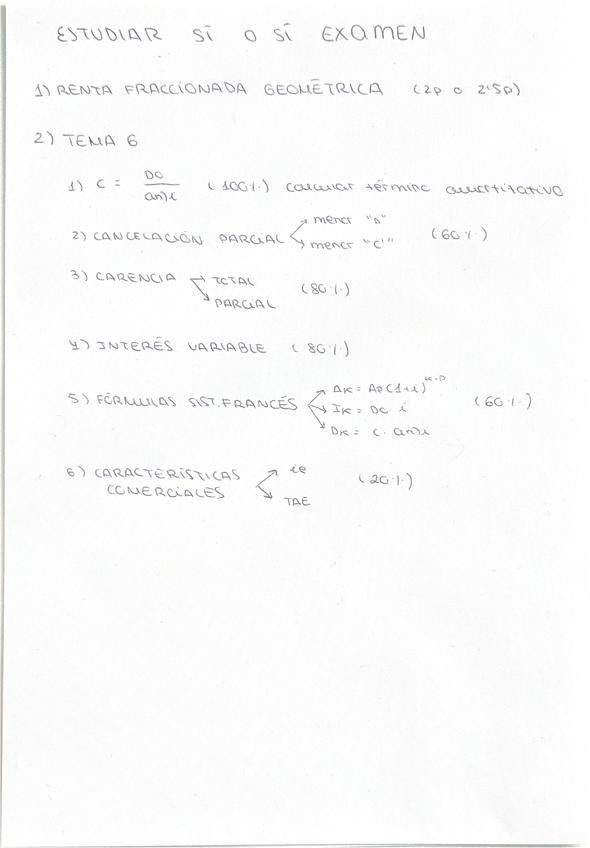 ESTUDIAR SÍ O SÍ EXAMEN
1) RENTA FRACCIONADA GEOMÉTRICA (2p o 2'5p)
2) TEMA 6
1) C = Do / an⌉i (100%) calcular término amortitativo
2) CANCELACIÓN PARCIAL → menor "n" (60%)
→ menor "C'"
3) CARENCIA → TOTAL (80%)
→ PARCIAL
4) INTERÉS VARIABLE (80%)
5) FÓRMULAS SIST. FRANCÉS → AK = AP(1+i)^K-P (60%)
→ IK = DC. i
→ DK = C. an⌉i
6) CARACTERÍSTICAS → ie (20%)
COMERCIALES → TAE